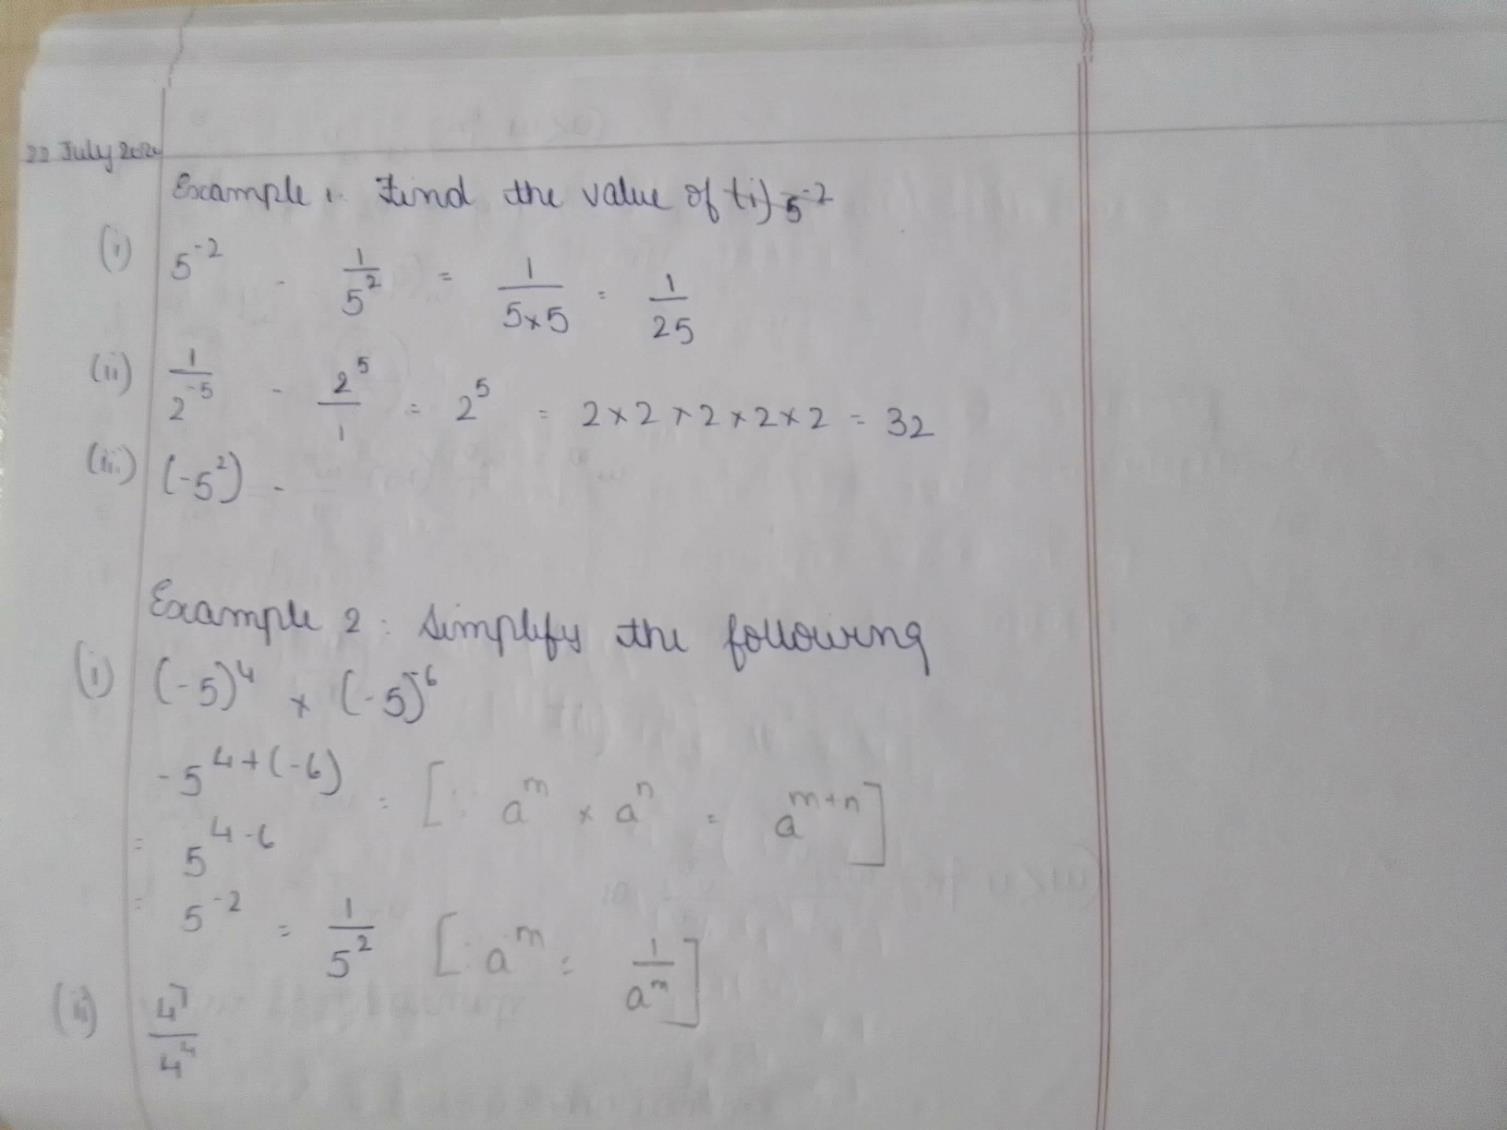 22 July 2020
Example 1. Find the value of (i) 5⁻²
(i) 5⁻² - 1/5² = 1/5×5 = 1/25
(ii) 1/2⁻⁵ - 2⁵/1 = 2⁵ = 2×2×2×2×2 = 32
(iii) (-5²) -
Example 2: Simplify the following
(i) (-5)⁴ × (-5)⁻⁶
-5⁴⁺⁽⁻⁶⁾ = [∵ aᵐ × aⁿ = aᵐ⁺ⁿ]
= 5⁴⁻⁶
= 5⁻² = 1/5² [∵ aᵐ = 1/aᵐ]
(ii) 4⁷/4⁴